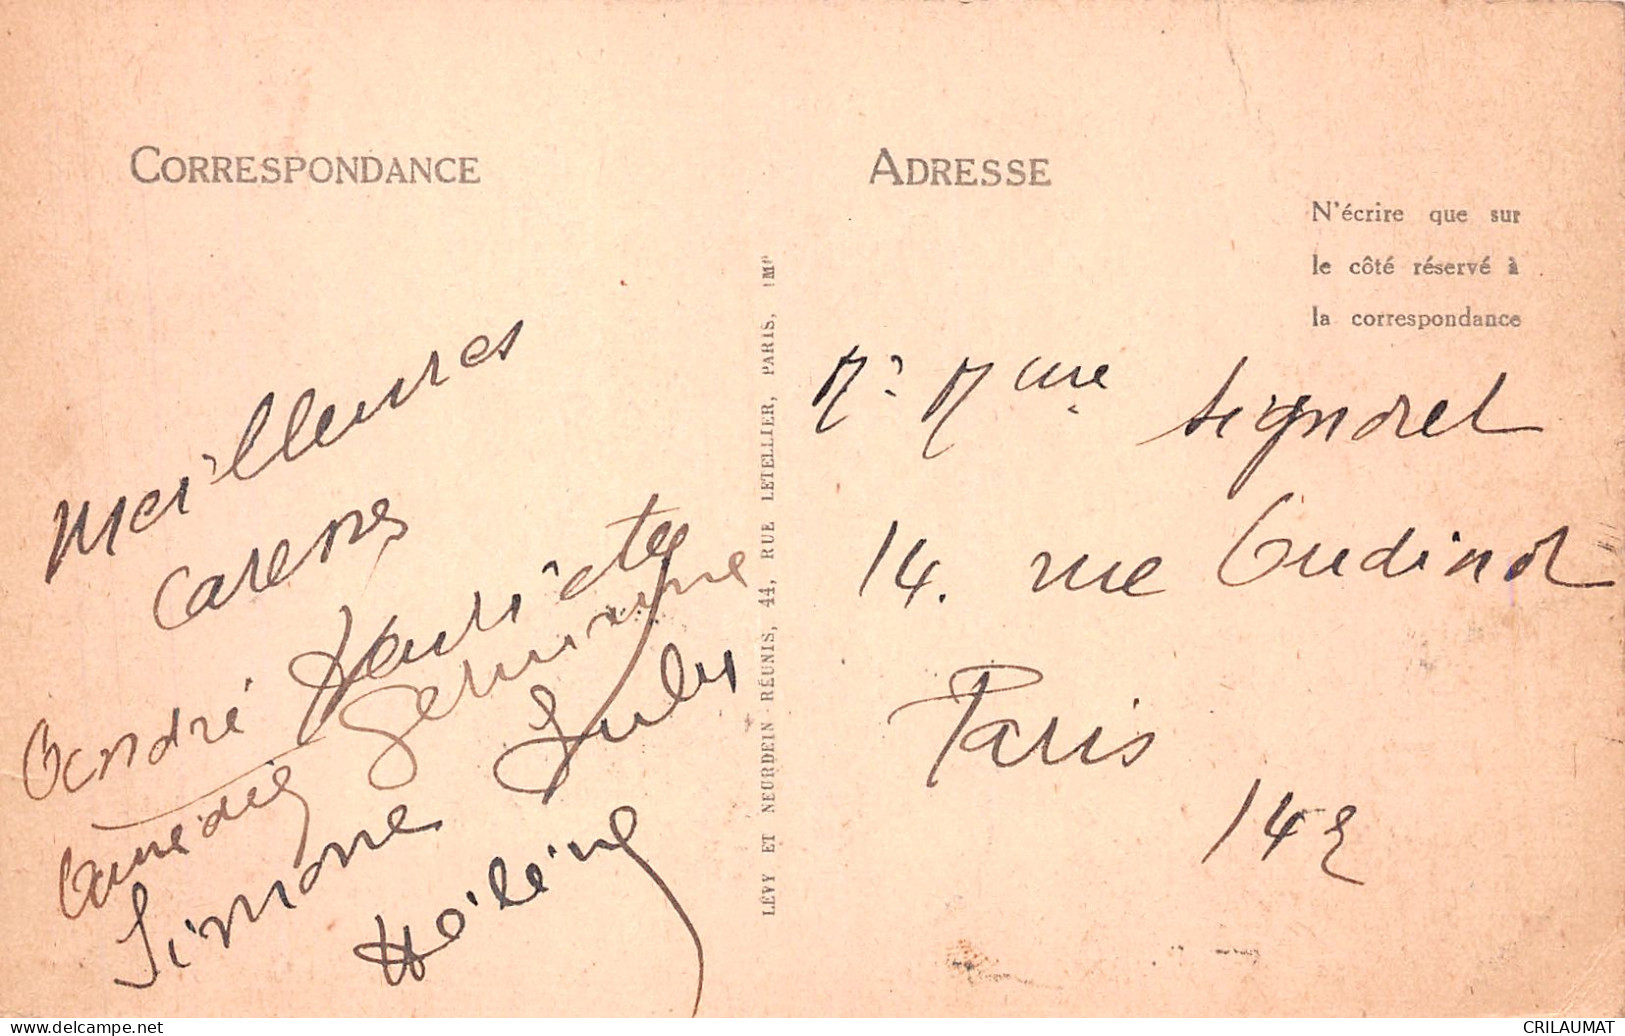 CORRESPONDANCE
Meilleures
caresses
André Henriette
Germaine
Amédée
Jules
Simone
Hélène
LÉVY ET NEURDEIN RÉUNIS, 44, RUE LETELLIER, PARIS, IMP
ADRESSE
N'écrire que sur
le côté réservé à
la correspondance
Mr Mme Signoret
14. rue Oudinot
Paris
14e
delcampe.net
CRILAUMAT